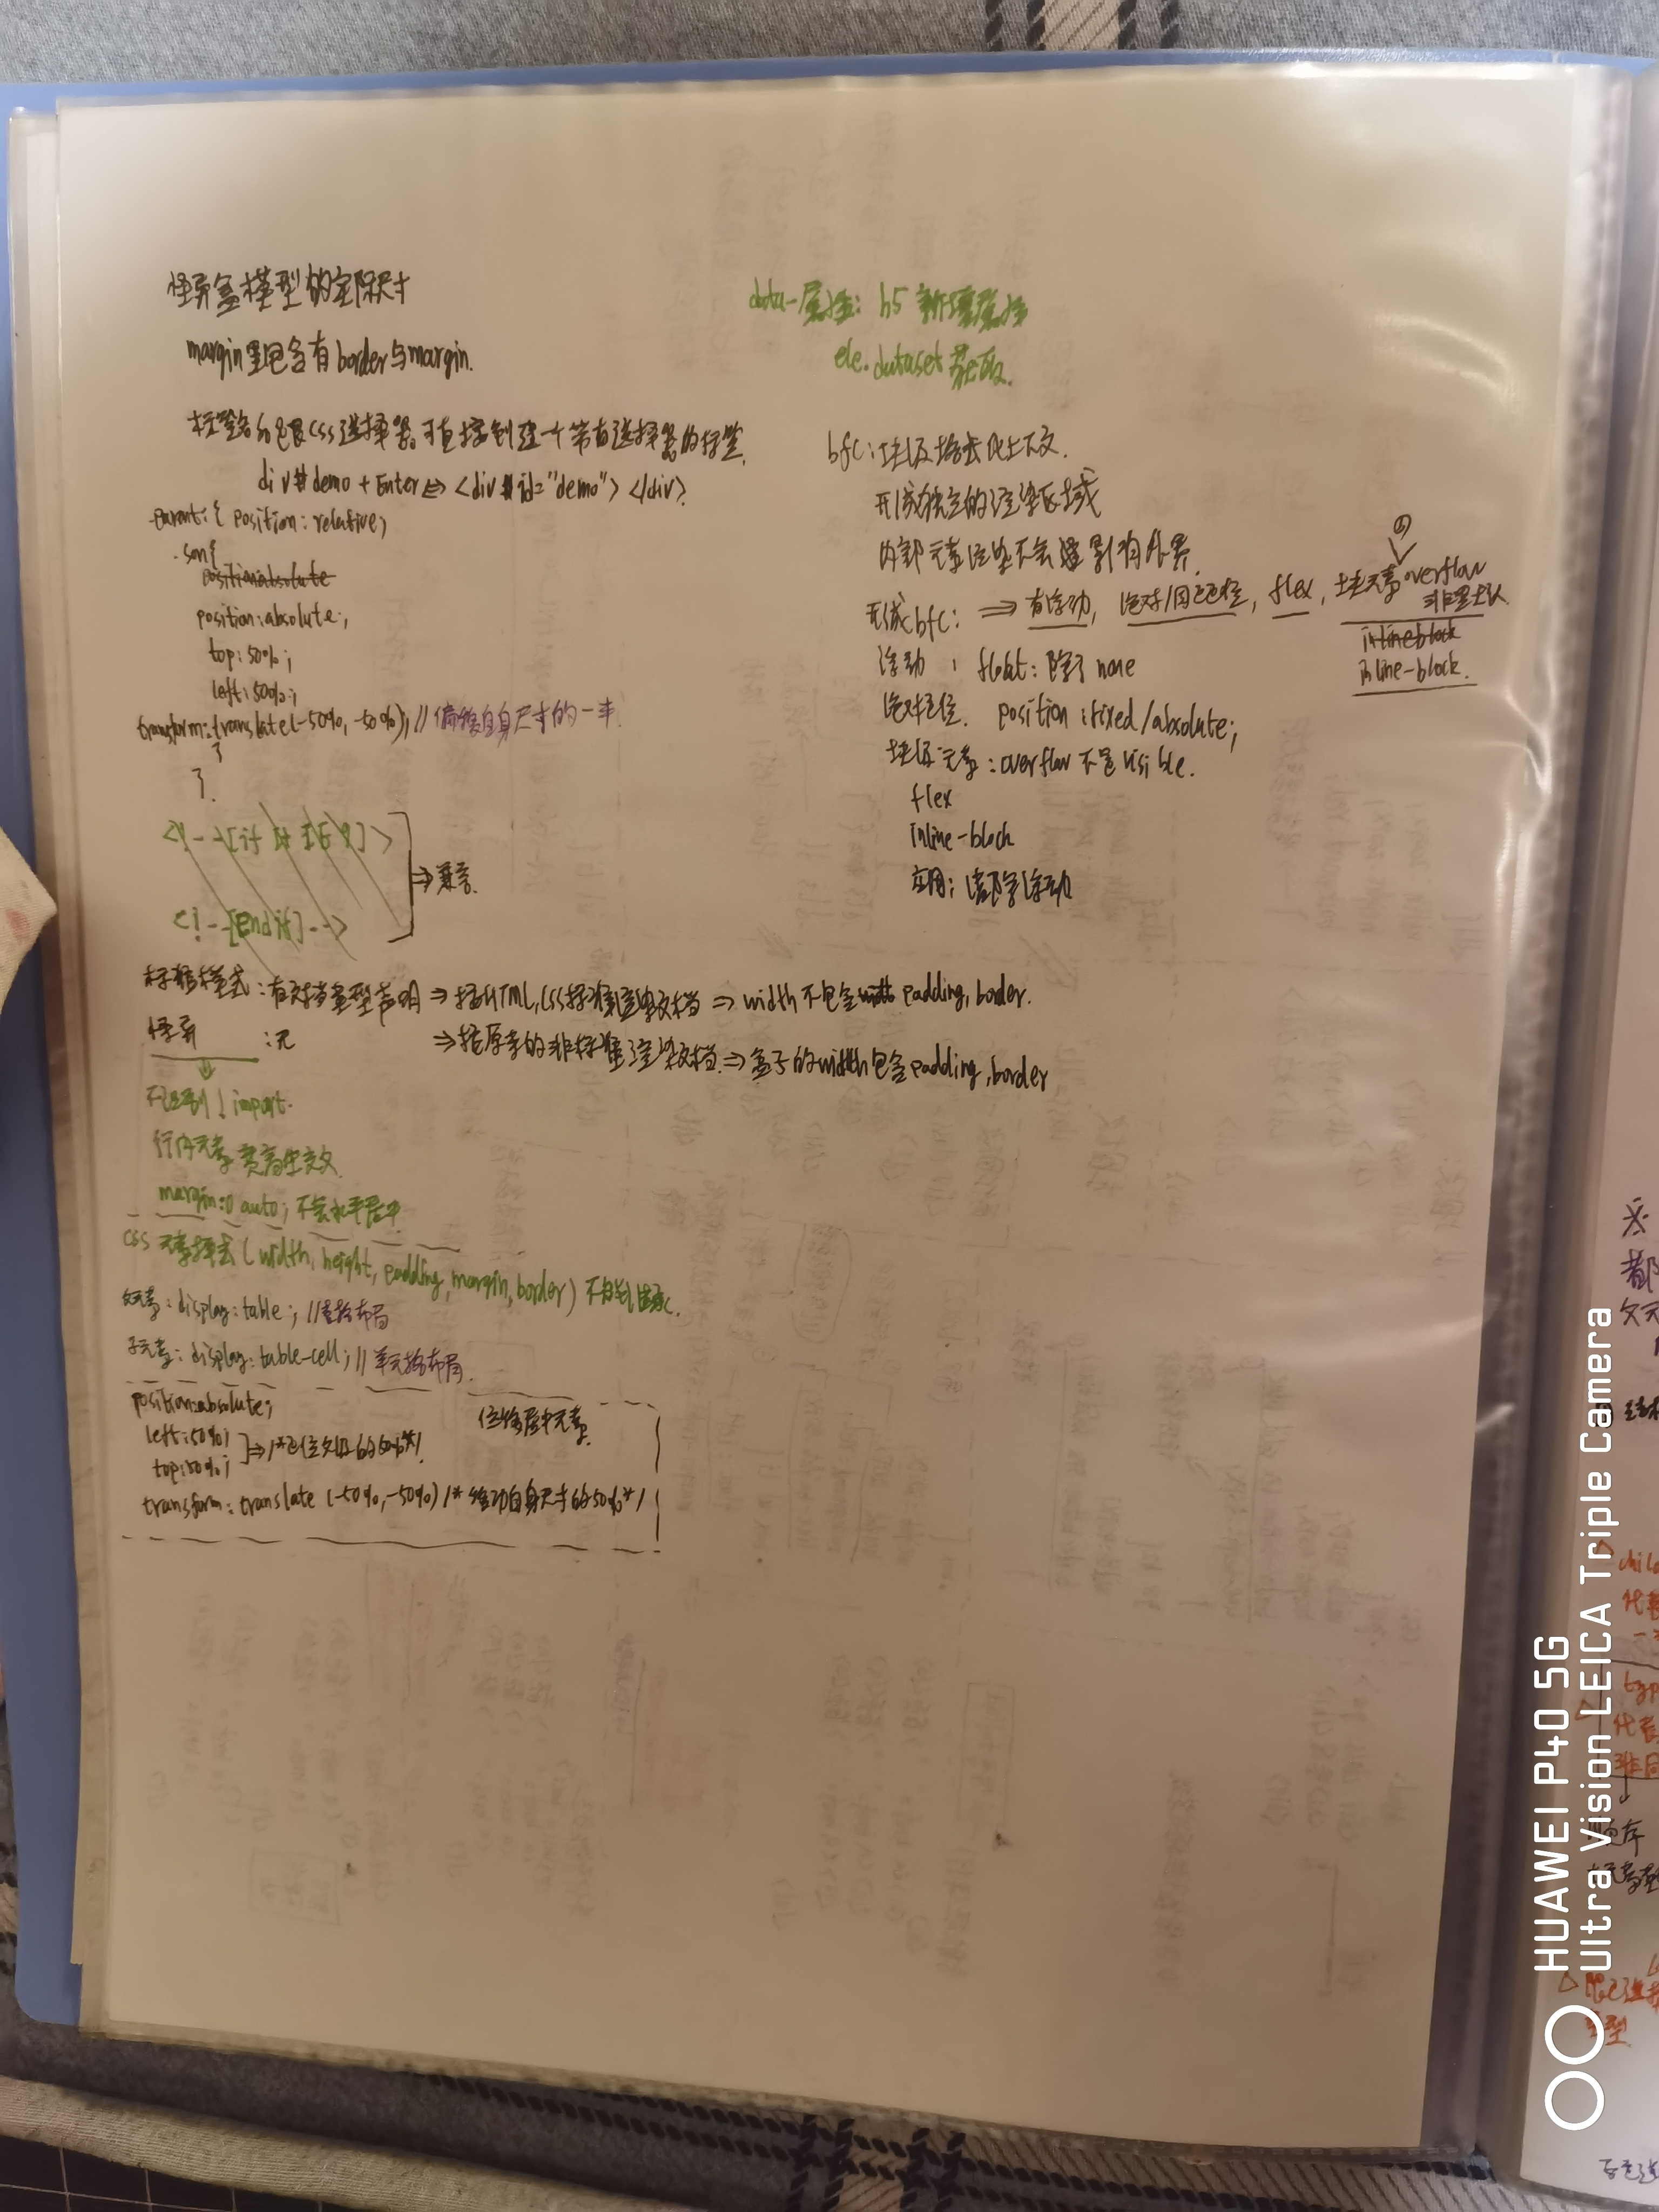 怪异盒模型的实际尺寸
margin里包含有border与margin.
标签名后跟css选择器,可直接创建一个带有选择器的标签.
div#demo + Enter ⇔ <div id="demo"> </div>
parent:{ position: relative;
.son{
position:absolute
position:absolute;
top:50%;
left:50%;
transform:translate(-50%,-50%); //偏移自身尺寸的一半.
}
}.
<!--[if lt IE 9]>
⇒兼容.
<!--[endif]-->
标准模式:有文档类型声明 ⇒ 按HTML,CSS标准渲染文档 ⇒ width不包含 padding, border.
怪异 :无 ⇒ 按原来的非标准渲染文档. ⇒ 盒子的width包含padding,border
不识别 ! import.
行内元素宽高生效
margin:0 auto; 不会水平居中
css 元素样式(width, height, padding, margin, border)不能继承.
父元素:display:table; //表格布局
子元素:display:table-cell; //单元格布局.
position:absolute;
位移居中元素.
left:50%;
⇒/*定位父级的50%*/
top:50%;
transform:translate (-50%,-50%) /*移动自身尺寸的50%*/
data-属性: h5 新增属性
ele.dataset 获取.
bfc:块级格式化上下文.
形成独立的渲染区域
内部元素渲染不会影响外界.
形成bfc: ⇒ 有浮动, 绝对/固定定位, flex, 块元素overflow
非默认
inlineblock
inline-block.
浮动 : float:除了none
绝对定位. position:fixed/absolute;
块级元素:overflow不是visible.
flex
inline-block
应用:清除浮动
HUAWEI P40 5G
Ultra Vision LEICA Triple Camera